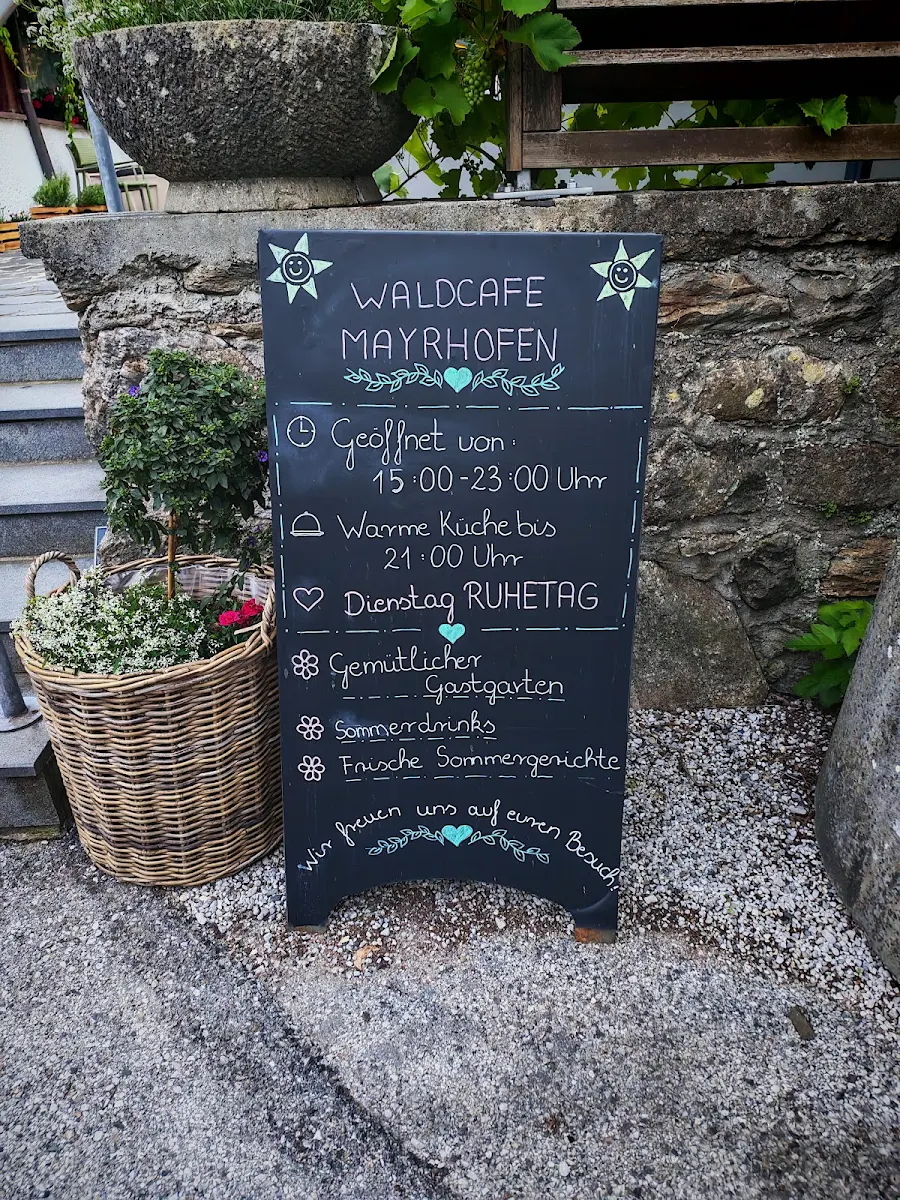 WALDCAFE
MAYRHOFEN
Geöffnet von:
15:00-23:00 Uhr
Warme Küche bis
21:00 Uhr
Dienstag RUHETAG
Gemütlicher
Gastgarten
Sommerdrinks
Frische Sommergerichte
Wir freuen uns auf euren Besuch!